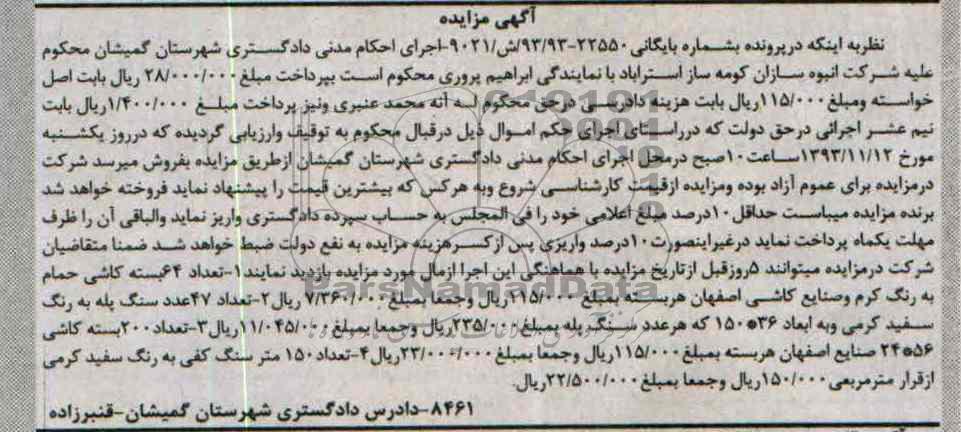 آگهی مزایده
نظربه اینکه درپرونده بشماره بایگانی۲۲۵۵۰-۹۳/۹۳/ش/۹۰۲۱-اجرای احکام مدنی دادگستری شهرستان گمیشان محکوم
علیه شرکت انبوه سازان کومه ساز استراباد با نمایندگی ابراهیم پروری محکوم است بپرداخت مبلغ۲۸/۰۰۰/۰۰۰ ریال بابت اصل
خواسته ومبلغ۱۱۵/۰۰۰ریال بابت هزینه دادرسی درحق محکوم له آنه محمد عنبری ونیز پرداخت مبلغ ۱/۴۰۰/۰۰۰ریال بابت
نیم عشر اجرائی درحق دولت که درراستای اجرای حکم اموال ذیل درقبال محکوم به توقیف وارزیابی گردیده که درروز یکشنبه
مورخ ۱۳۹۳/۱۱/۱۲ساعت۱۰صبح درمحل اجرای احکام مدنی دادگستری شهرستان گمیشان ازطریق مزایده بفروش میرسد شرکت
درمزایده برای عموم آزاد بوده ومزایده ازقیمت کارشناسی شروع وبه هرکس که بیشترین قیمت را پیشنهاد نماید فروخته خواهد شد
برنده مزایده میباست حداقل۱۰درصد مبلغ اعلامی خود را فی المجلس به حساب سپرده دادگستری واریز نماید والباقی آن را ظرف
مهلت یکماه پرداخت نماید درغیراینصورت۱۰درصد واریزی پس ازکسرهزینه مزایده به نفع دولت ضبط خواهد شد ضمنا متقاضیان
شرکت درمزایده میتوانند ۵روزقبل ازتاریخ مزایده با هماهنگی این اجرا ازمال مورد مزایده بازدید نمایند۱-تعداد ۶۴بسته کاشی حمام
به رنگ کرم وصنایع کاشی اصفهان هربسته بمبلغ ۱۱۵/۰۰۰ریال وجمعا بمبلغ۷/۳۶۰/۰۰۰ ریال۲-تعداد ۴۷عدد سنگ پله به رنگ
سفید کرمی وبه ابعاد ۳۶*۱۵۰ که هرعدد سنگ پله بمبلغ۲۳۵/۰۰۰ریال وجمعا بمبلغ۱۱/۰۴۵/۰۰۰ریال۳-تعداد۲۰۰بسته کاشی
۵۶*۲۴ صنایع اصفهان هربسته بمبلغ۱۱۵/۰۰۰ریال وجمعا بمبلغ۲۳/۰۰۰/۰۰۰ریال۴-تعداد۱۵۰ متر سنگ کفی به رنگ سفید کرمی
ازقرار مترمربعی۱۵۰/۰۰۰ریال وجمعا بمبلغ۲۲/۵۰۰/۰۰۰ریال.
۸۴۶۱-دادرس دادگستری شهرستان گمیشان-قنبرزاده
ParsNamadData